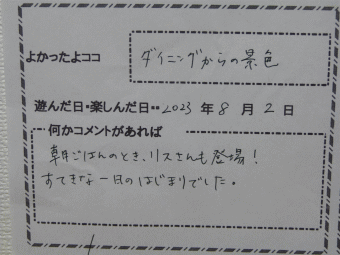 よかったよココ ダイニングからの景色
遊んだ日・楽しんだ日・・2023 年 8 月 2 日
何かコメントがあれば
朝ごはんのとき、リスさんも登場!
すてきな一日のはじまりでした。